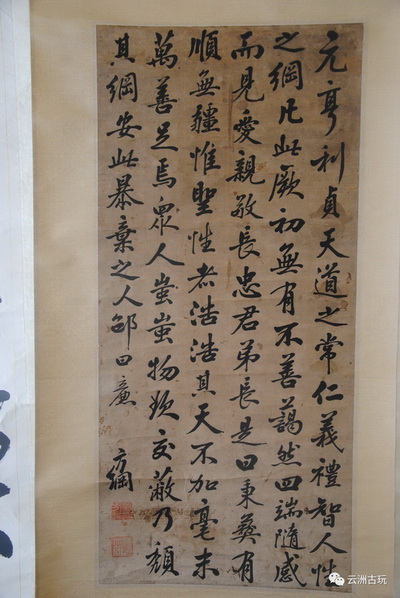 元亨利貞天道之常仁義禮智人性
之綱凡此厥初無有不善藹然四端隨感
而見愛親敬長忠君弟長是曰秉彝有
順無疆惟聖性者浩浩其天不加毫末
萬善足焉眾人蚩蚩物欲交蔽乃頹
其綱安此暴棄之人邵曰廉
方綱
云洲古玩